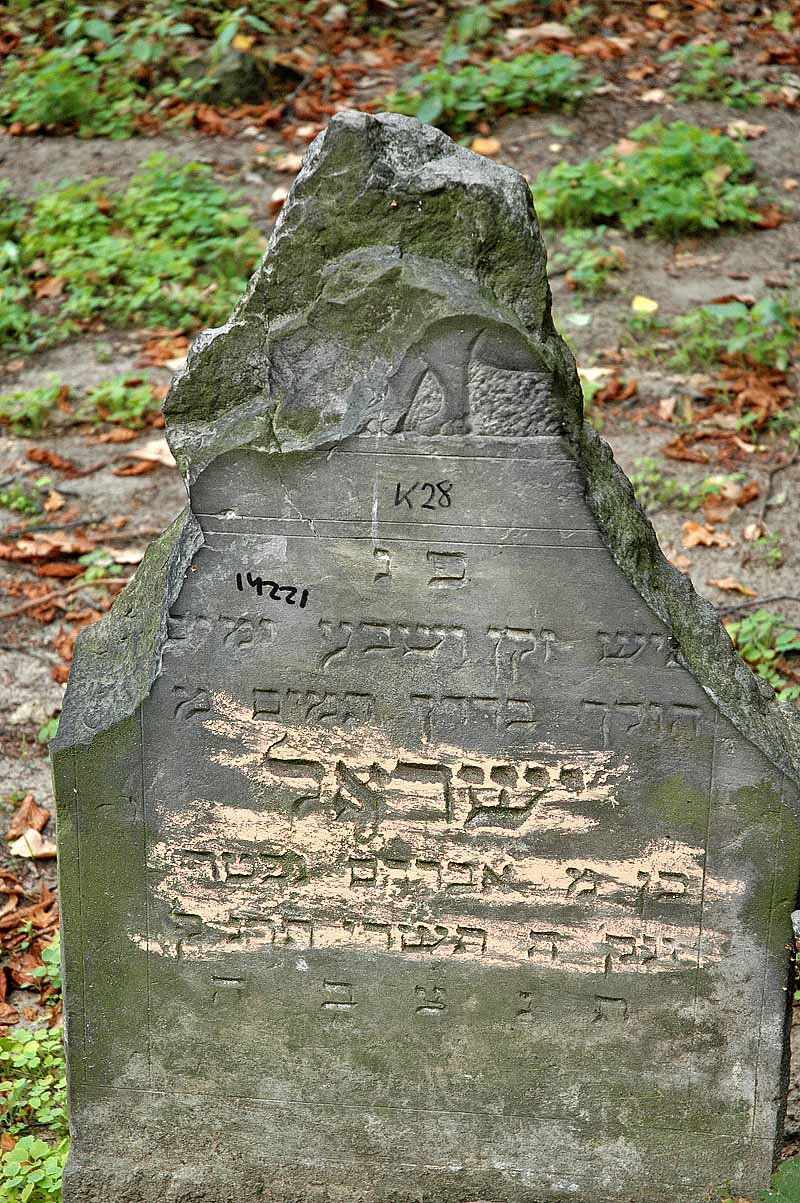 K28
פ נ
14221
איש זקן ושבע ימים
הולך בדרך תמים מ
ישראל
בן מ אברהם ונפטר
ונק ה תשרי
ת נ צ ב ה